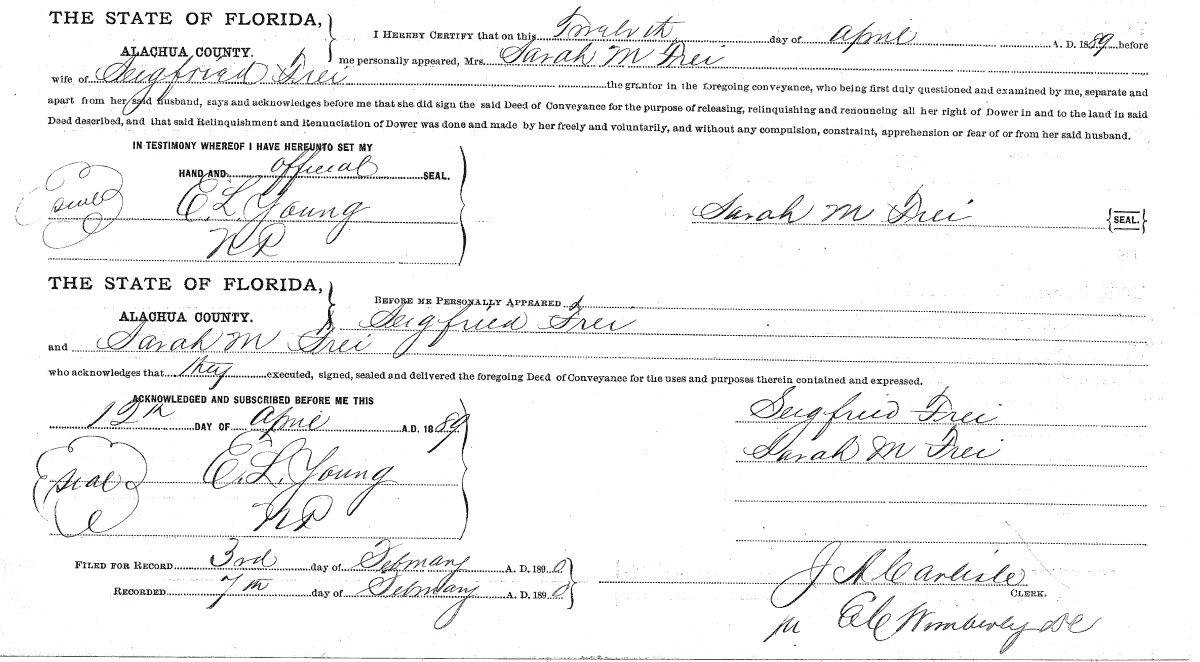 THE STATE OF FLORIDA,
ALACHUA COUNTY.
I HEREBY CERTIFY that on this Twelvth day of April A. D. 1889 before
me personally appeared, Mrs. Sarah M Frei
wife of Seigfried Frei the grantor in the foregoing conveyance, who being first duly questioned and examined by me, separate and
apart from her said husband, says and acknowledges before me that she did sign the said Deed of Conveyance for the purpose of releasing, relinquishing and renouncing all her right of Dower in and to the land in said
Deed described, and that said Relinquishment and Renunciation of Dower was done and made by her freely and voluntarily, and without any compulsion, constraint, apprehension or fear of or from her said husband.
IN TESTIMONY WHEREOF I HAVE HEREUNTO SET MY
HAND AND official SEAL.
seal E. L. Young
NP
Sarah M Frei {SEAL.}
THE STATE OF FLORIDA,
ALACHUA COUNTY.
BEFORE ME PERSONALLY APPEARED
Seigfried Frei
and Sarah M Frei
who acknowledges that they executed, signed, sealed and delivered the foregoing Deed of Conveyance for the uses and purposes therein contained and expressed.
ACKNOWLEDGED AND SUBSCRIBED BEFORE ME THIS
12th DAY OF April A.D. 1889
seal E. L. Young
NP
Seigfried Frei
Sarah M Frei
FILED FOR RECORD 3rd day of February A. D. 1890
RECORDED 7th day of February A. D. 1890
J A Carlisle
CLERK.
E C Wimberly DC